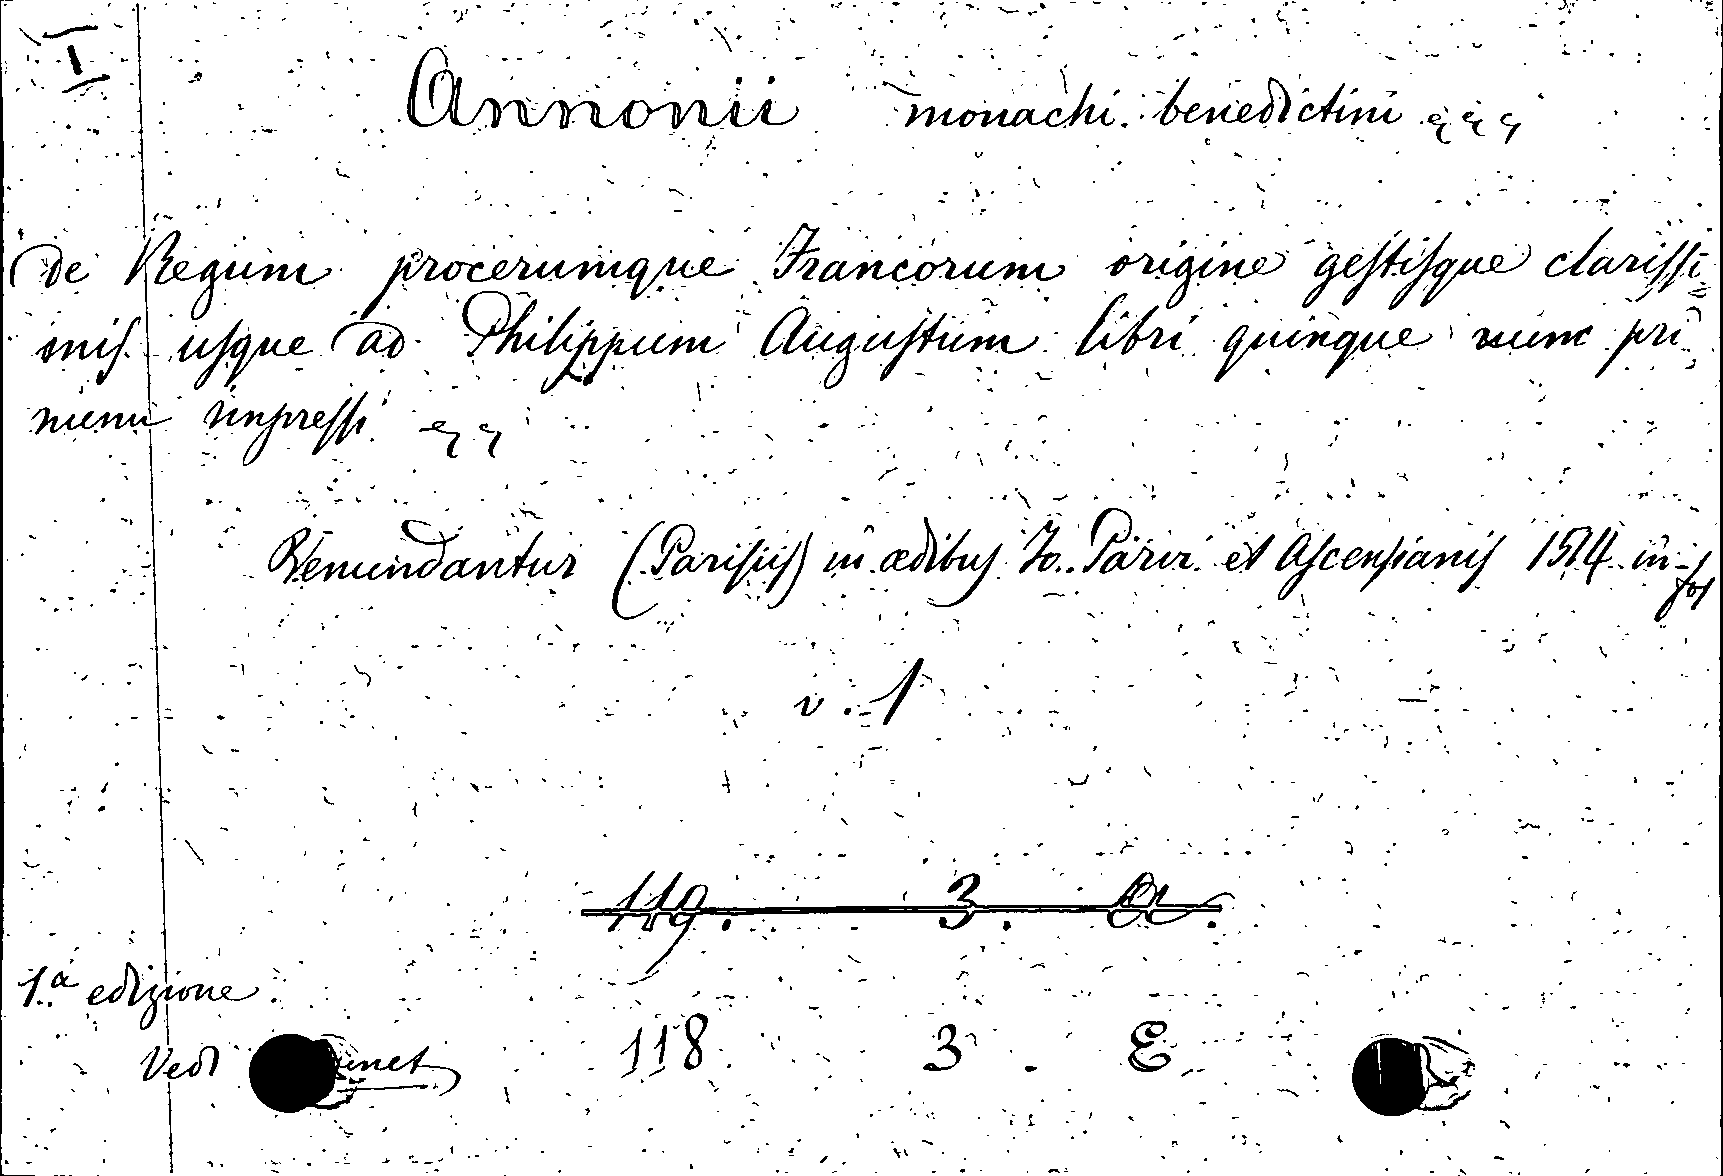 I
Annonii monachi benedictini & & &
de Regum procerumque Francorum origine gestisque clarissi=
mis usque ad Philippum Augustum libri quinque nunc pri=
mum impressi & &
Venundantur (Parisiis) in ædibus Jo. Parvi et Ascensianis 1514 in-fol
v. 1
119. 3. A.
1.a edizione
Vedi
118 3. E